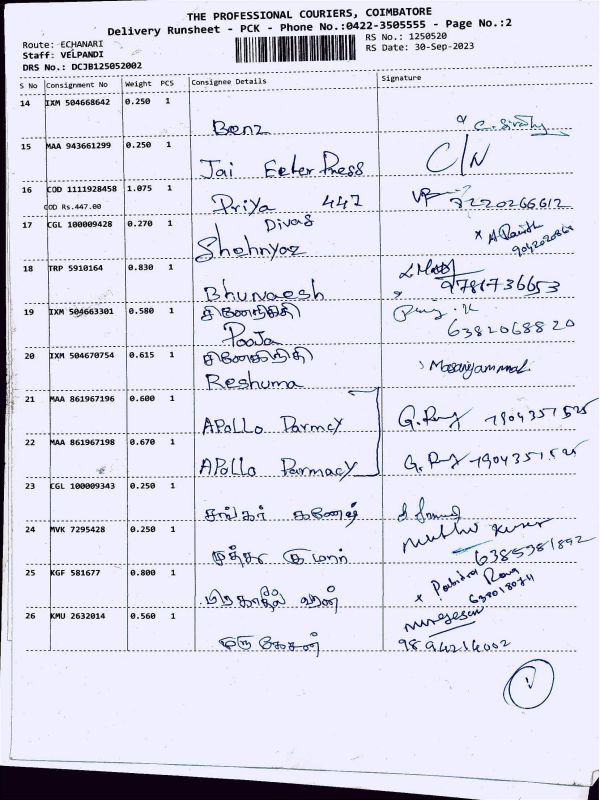 THE PROFESSIONAL COURIERS, COIMBATORE
Delivery Runsheet - PCK - Phone No.:0422-3505555 - Page No.:2
Route: ECHANARI
RS No.: 1250520
Staff: VELPANDI
RS Date: 30-Sep-2023
DRS No.: DCJB125052002
S No Consignment No Weight PCS Consignee Details Signature
14 IXM 504668642 0.250 1
Benz
15 MAA 943661299 0.250 1
Jai Eeter Press C/N
16 COD 1111928458 1.075 1
COD Rs.447.00 Priya 447 7220266612
17 CGL 100009428 0.270 1 Divas
Shehnyaz
18 TRP 5910164 0.830 1
Bhuvaesh 9787736653
19 IXM 504663301 0.580 1
Pooja 6382068820
20 IXM 504670754 0.615 1
Reshuma Masaniyammal
21 MAA 861967196 0.600 1
APollo Parmcy 7904351525
22 MAA 861967198 0.670 1
APollo Parmacy 7904351525
23 CGL 100009343 0.250 1
சங்கர் கணேஷ்
24 MVK 7295428 0.250 1 Muthu Kumar
முத்து குமார் 6385981892
25 KGF 581677 0.800 1
26 KMU 2632014 0.560 1 murgesan
முருகேசன் 9894214002